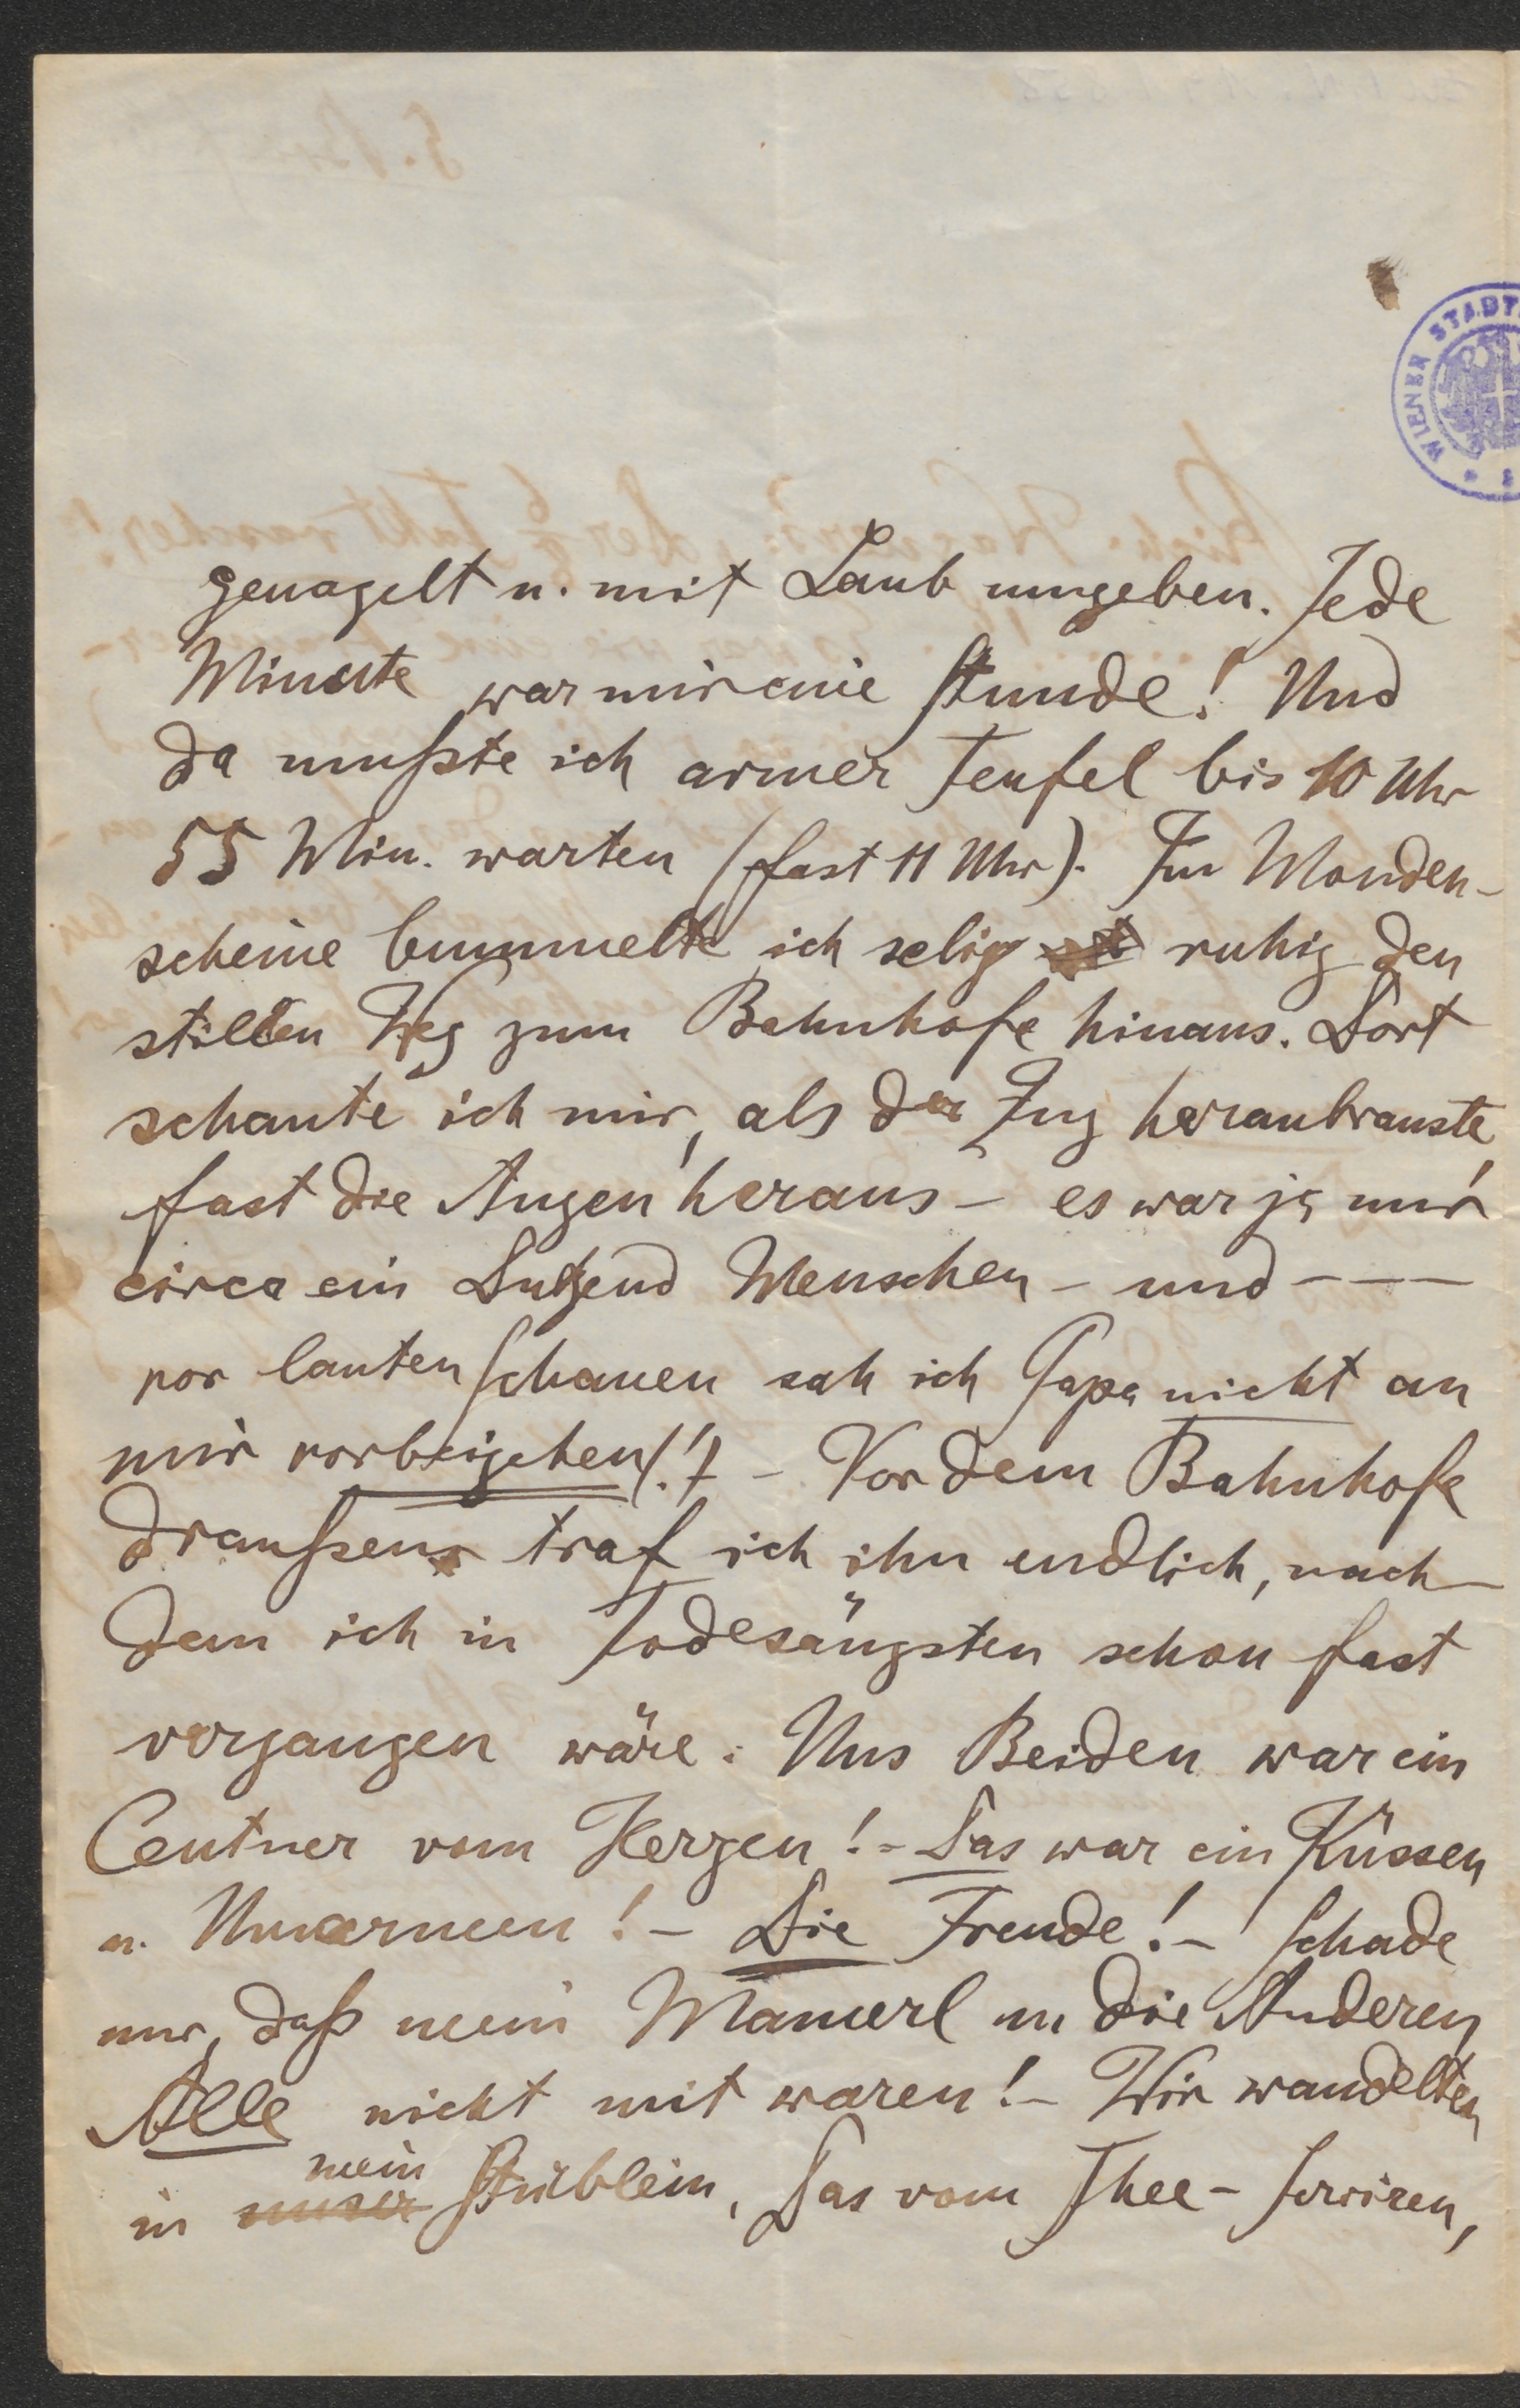 WIENER STADT
genagelt u. mit Laub umgeben. Jede
Minute war mir eine Stunde! Und
da mußte ich armer Teufel bis 10 Uhr
55 Min. warten (fast 11 Uhr). Im Monden-
scheine bummelte ich selig ruhig den
stillen Weg zum Bahnhofe hinaus. Dort
schaute ich mir, als der Zug heranbrauste,
fast die Augen heraus – es war ja nur
circa ein Dutzend Menschen – und – – –
vor lauten Schauen sah ich Papa nicht an
mir vorbeigehen(!) – Vor dem Bahnhofe
draußen traf ich ihn endlich, nach-
dem ich in Todesängsten schon fast
vergangen wäre. Uns Beiden war ein
Centner vom Herzen! – Das war ein Küssen
u. Umarmen! – Die Freude! – Schade
nur, daß mein Mamerl u die Anderen
Alle nicht mit waren! – Wir wandelten
mein
in unser Stüblein, das vom Thee-Serviren,